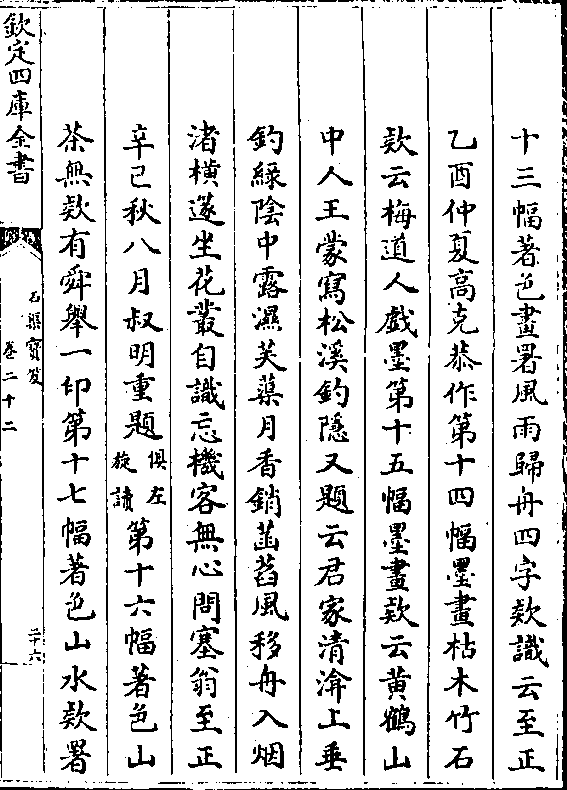 十三幅著色畫署風雨歸舟四字欵識云至正
乙酉仲夏高克恭作第十四幅墨畫枯木竹石
欵云梅道人戲墨第十五幅墨畫欵云黃鶴山
中人王蒙寫松溪釣隱又題云君家清渰上垂
釣綠陰中露濕芙蕖月香銷菡萏風移舟入烟
渚橫邃坐花叢自識忘機客無心問塞翁至正
辛巳秋八月叔明重題俱左旋讀第十六幅著色山
茶無欵有舜舉一印第十七幅著色山水欵署
欽定四庫全書
石渠寶笈
卷二十二
二十六